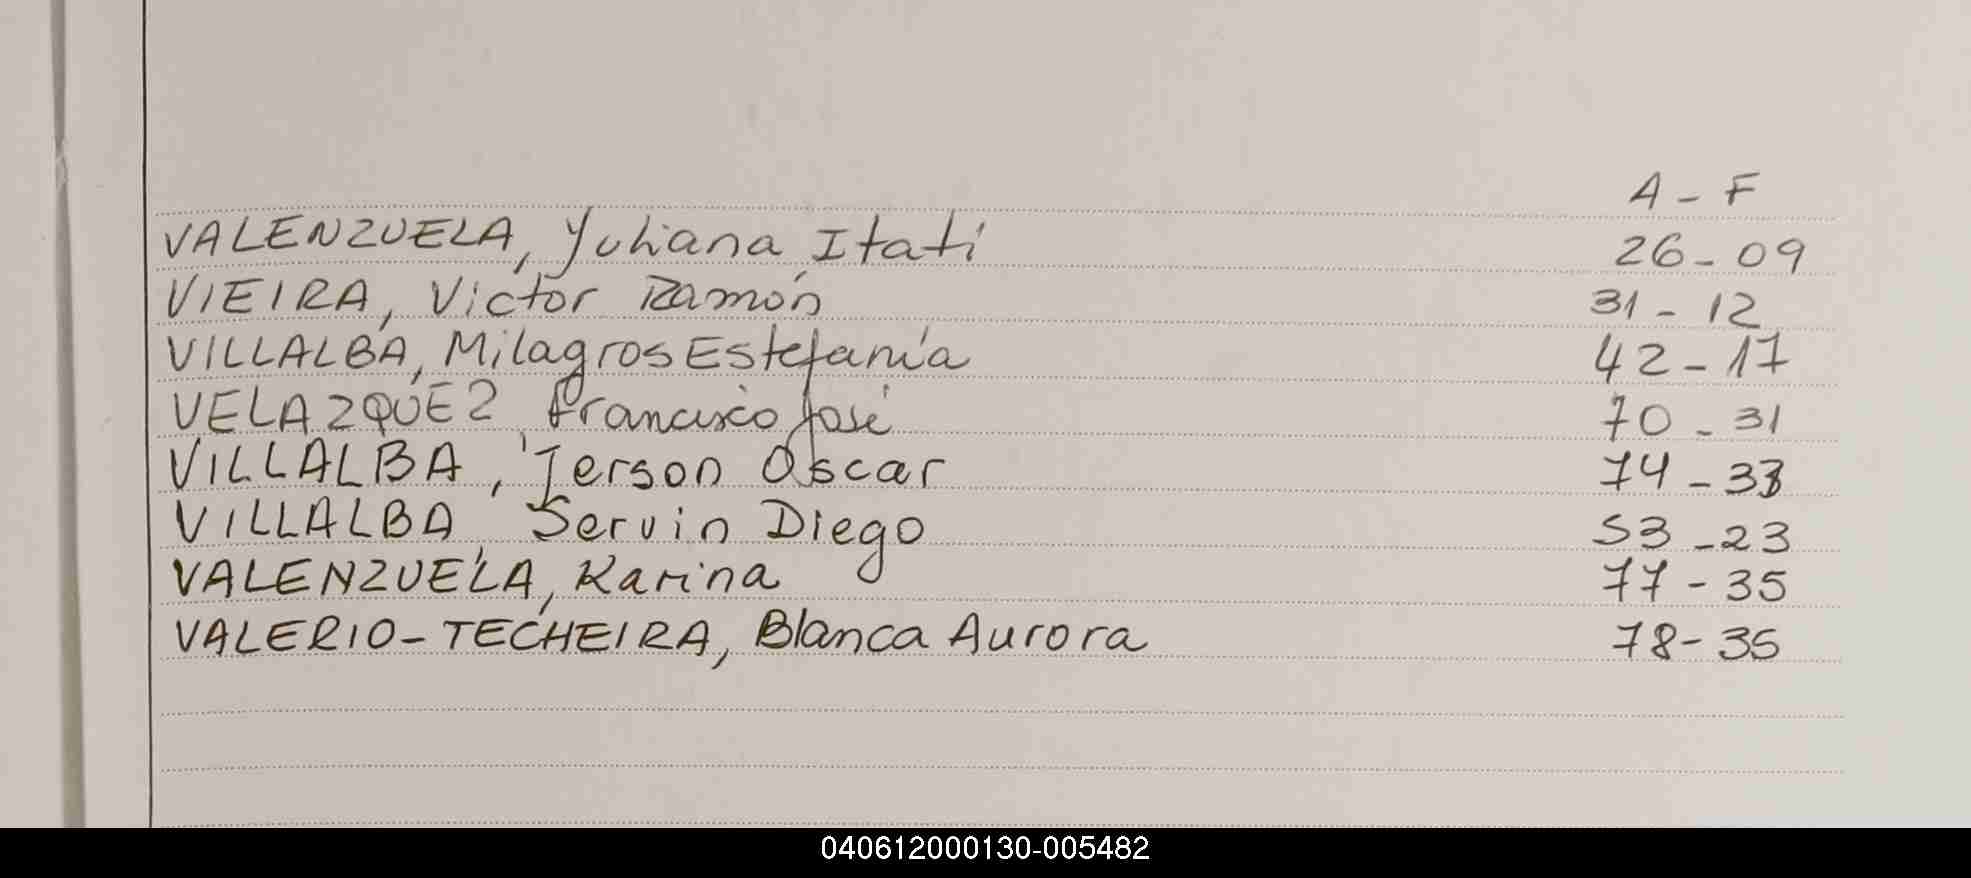 A - F
VALENZUELA, Yuliana Itatí 26 - 09
VIEIRA, Victor Ramón 31 - 12
VILLALBA, Milagros Estefanía 42 - 17
VELAZQUEZ, Francisco José 70 - 31
VILLALBA, Jerson Oscar 74 - 33
VILLALBA, Servin Diego 53 - 23
VALENZUELA, Karina 77 - 35
VALERIO-TECHEIRA, Blanca Aurora 78 - 35
040612000130-005482